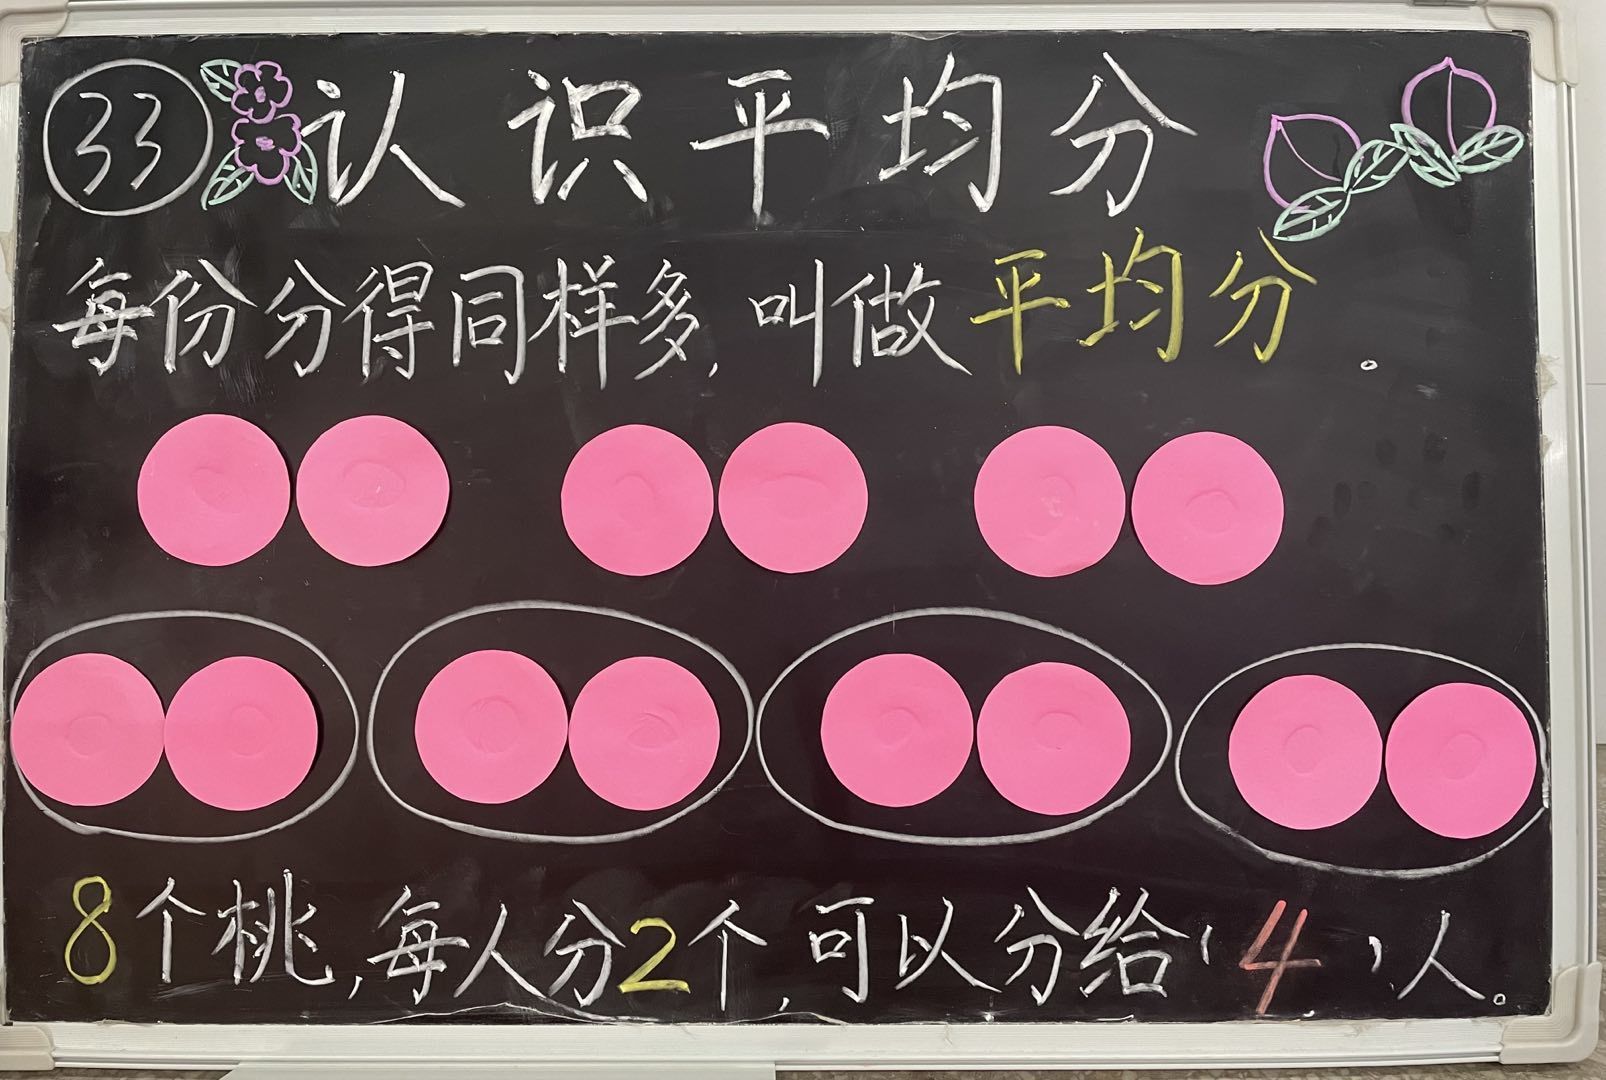 33 认识平均分
每份分得同样多,叫做平均分。
8个桃,每人分2个,可以分给(4)人。